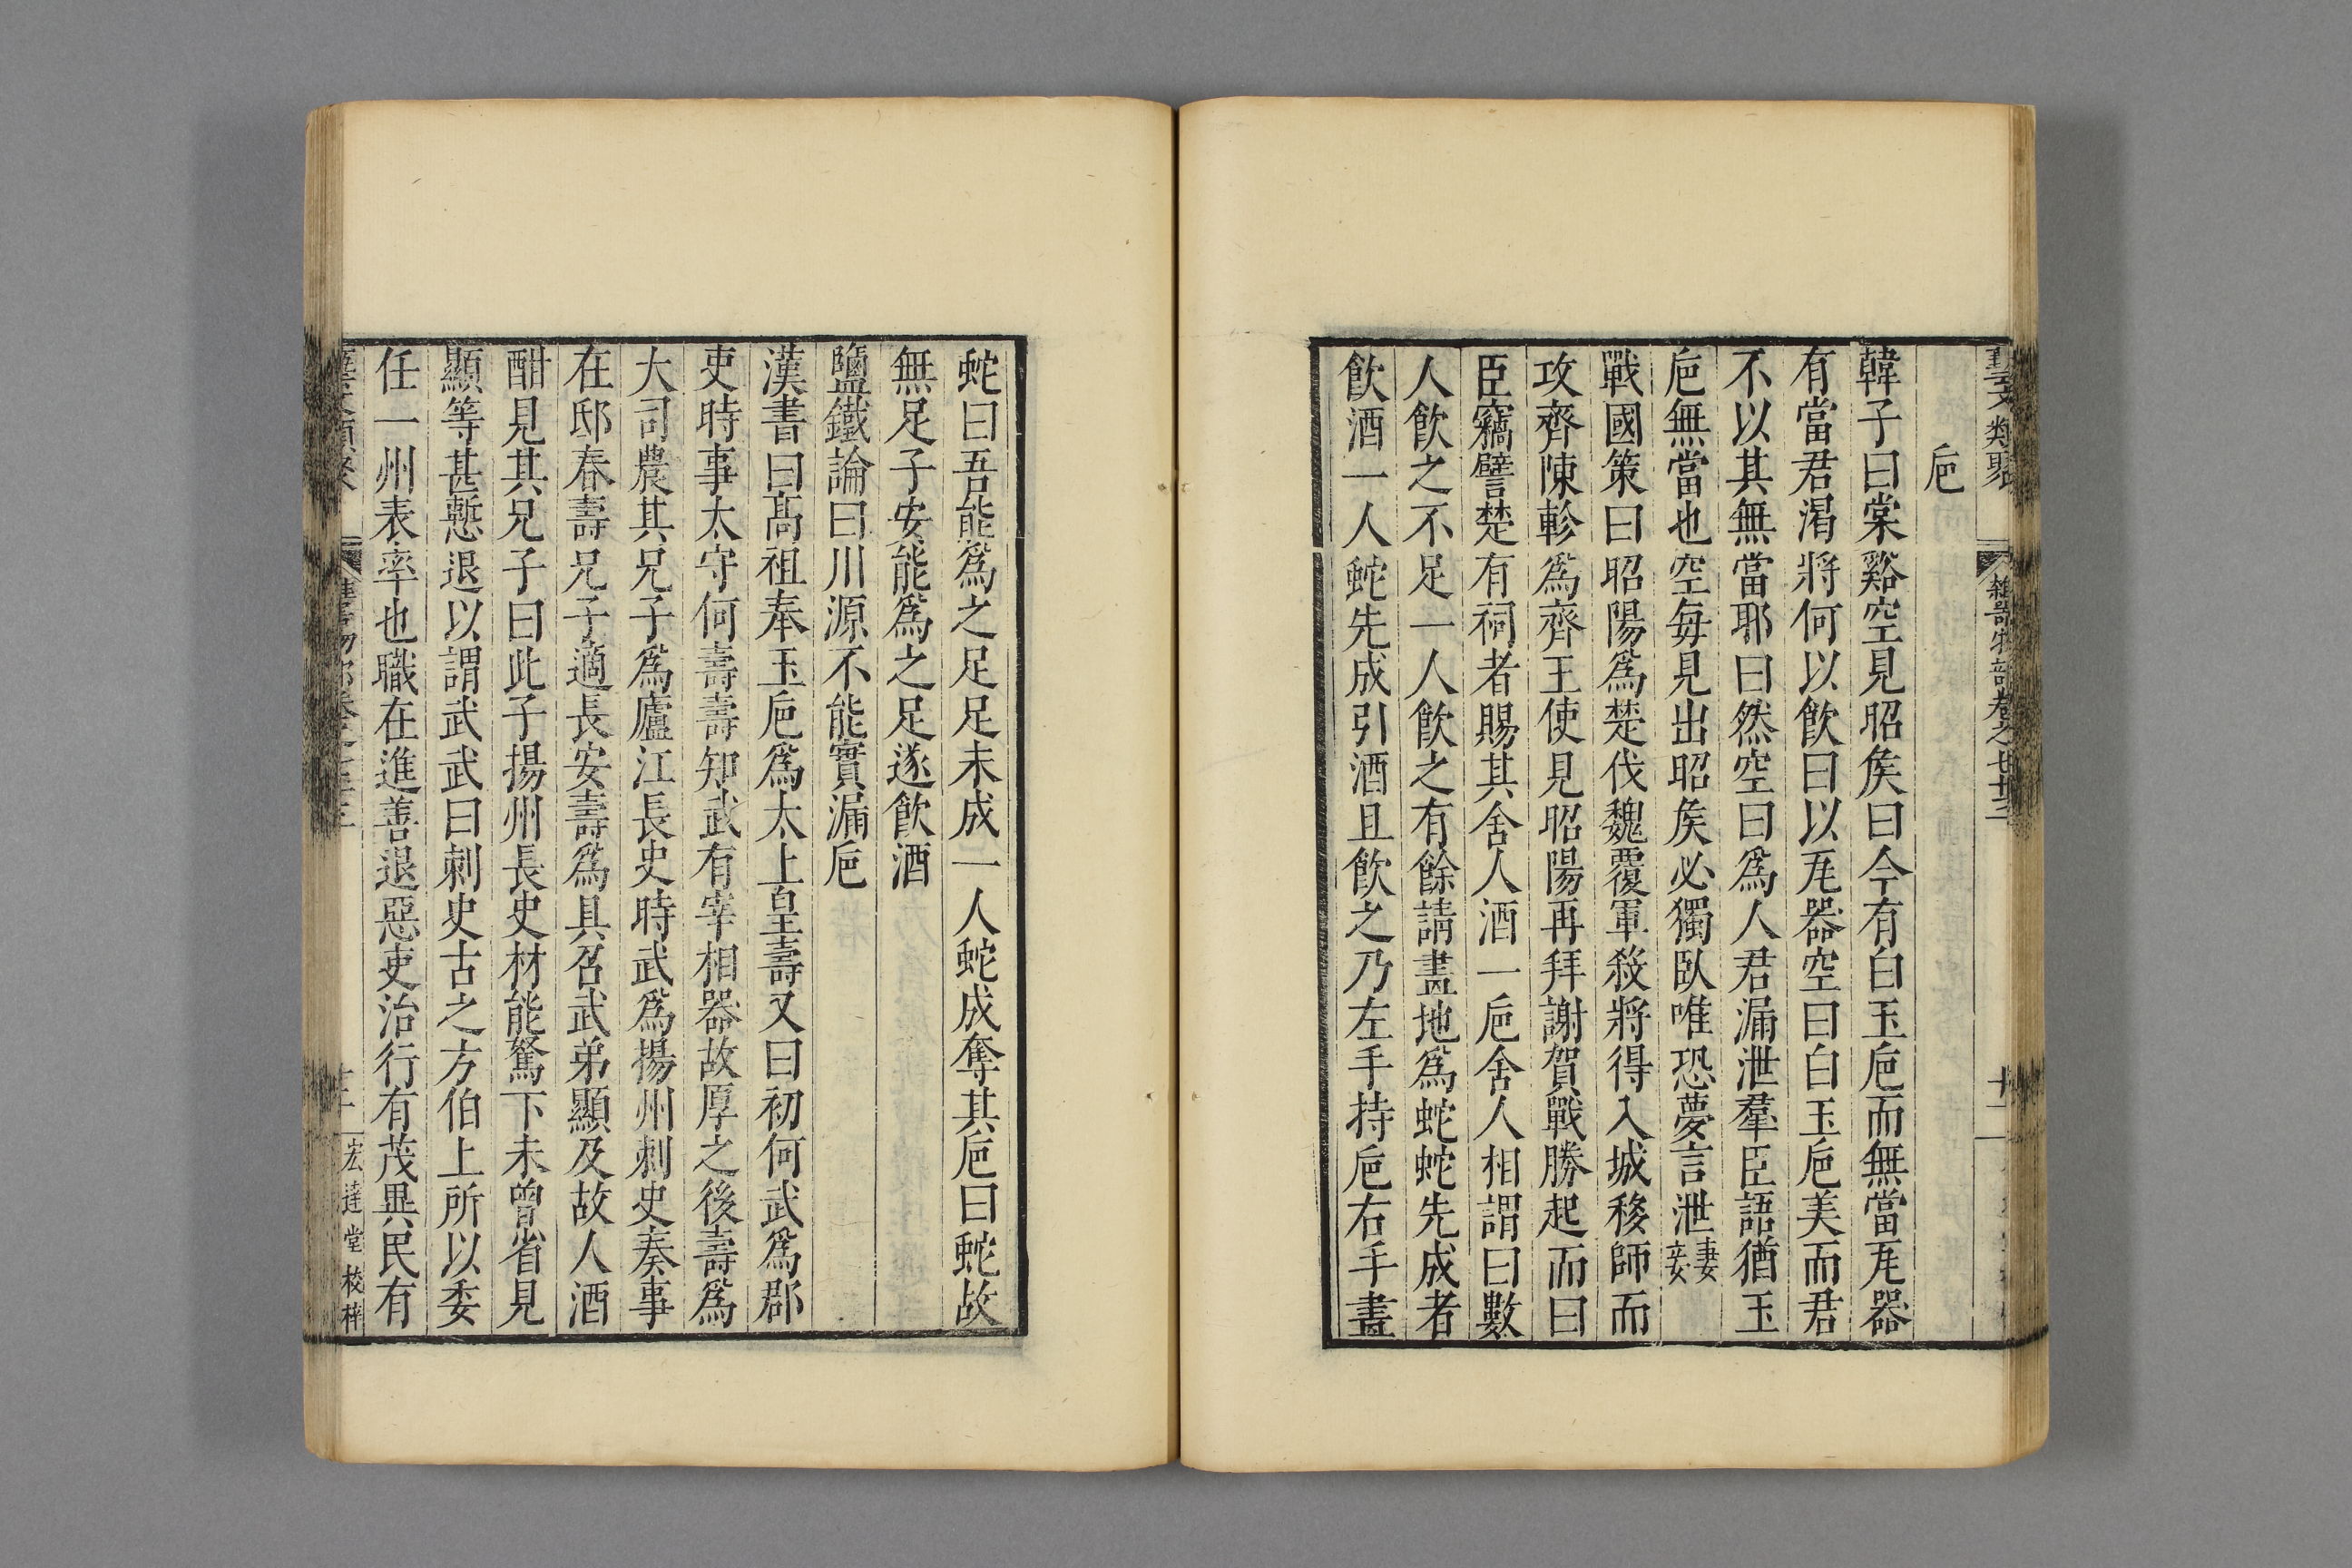 藝文類聚 雜器物部卷之七十三 十二
巵
韓子曰棠谿空見昭矦曰今有白玉巵而無當瓦器
有當君渴將何以飲曰以瓦器空曰白玉巵美而君
不以其無當耶曰然空曰爲人君漏泄羣臣語猶玉
巵無當也空每見出昭矦必獨臥唯恐夢言泄妻妾
戰國策曰昭陽爲楚伐魏覆軍殺將得入城移師而
攻齊陳軫爲齊王使見昭陽再拜謝賀戰勝起而曰
臣竊譬楚有祠者賜其舍人酒一巵舍人相謂曰數
人飲之不足一人飲之有餘請畫地爲蛇蛇先成者
飲酒一人蛇先成引酒且飲之乃左手持巵右手畫
蛇曰吾能爲之足足未成一人蛇成奪其巵曰蛇故
無足子安能爲之足遂飲酒
鹽鐵論曰川源不能實漏巵
漢書曰高祖奉玉巵爲太上皇壽又曰初何武爲郡
吏時事太守何壽壽知武有宰相器故厚之後壽爲
大司農其兄子爲廬江長史時武爲揚州刺史奏事
在邸春壽兄子適長安壽爲具召武弟顯及故人酒
酣見其兄子曰此子揚州長史材能駑下未曾省見
顯等甚慙退以謂武武曰刺史古之方伯上所以委
任一州表率也職在進善退惡吏治行有茂異民有
宏達堂校梓